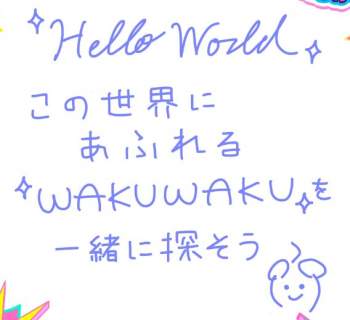 Hello World
この世界に
あふれる
WAKUWAKUを
一緒に探そう